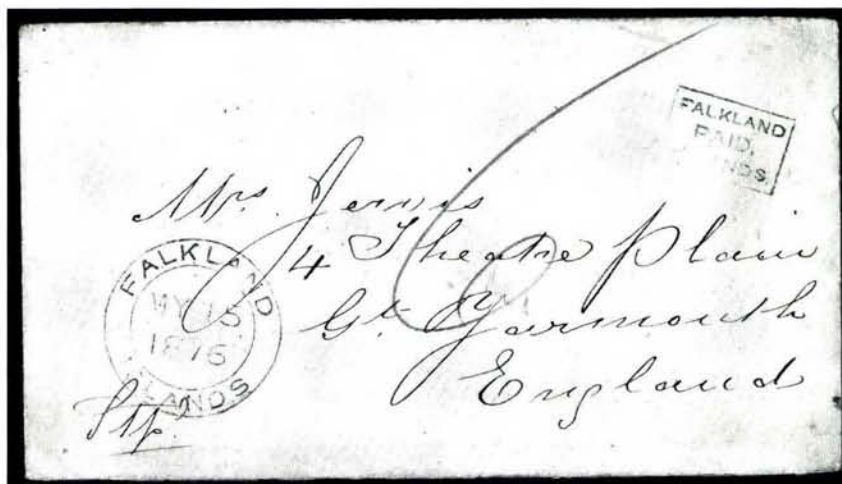 FALKLAND
PAID.
NDS.
Mrs. Jervis
4 Theatre Plain
Gt. Yarmouth
England
FALKLAND
MY 15
1876
LANDS